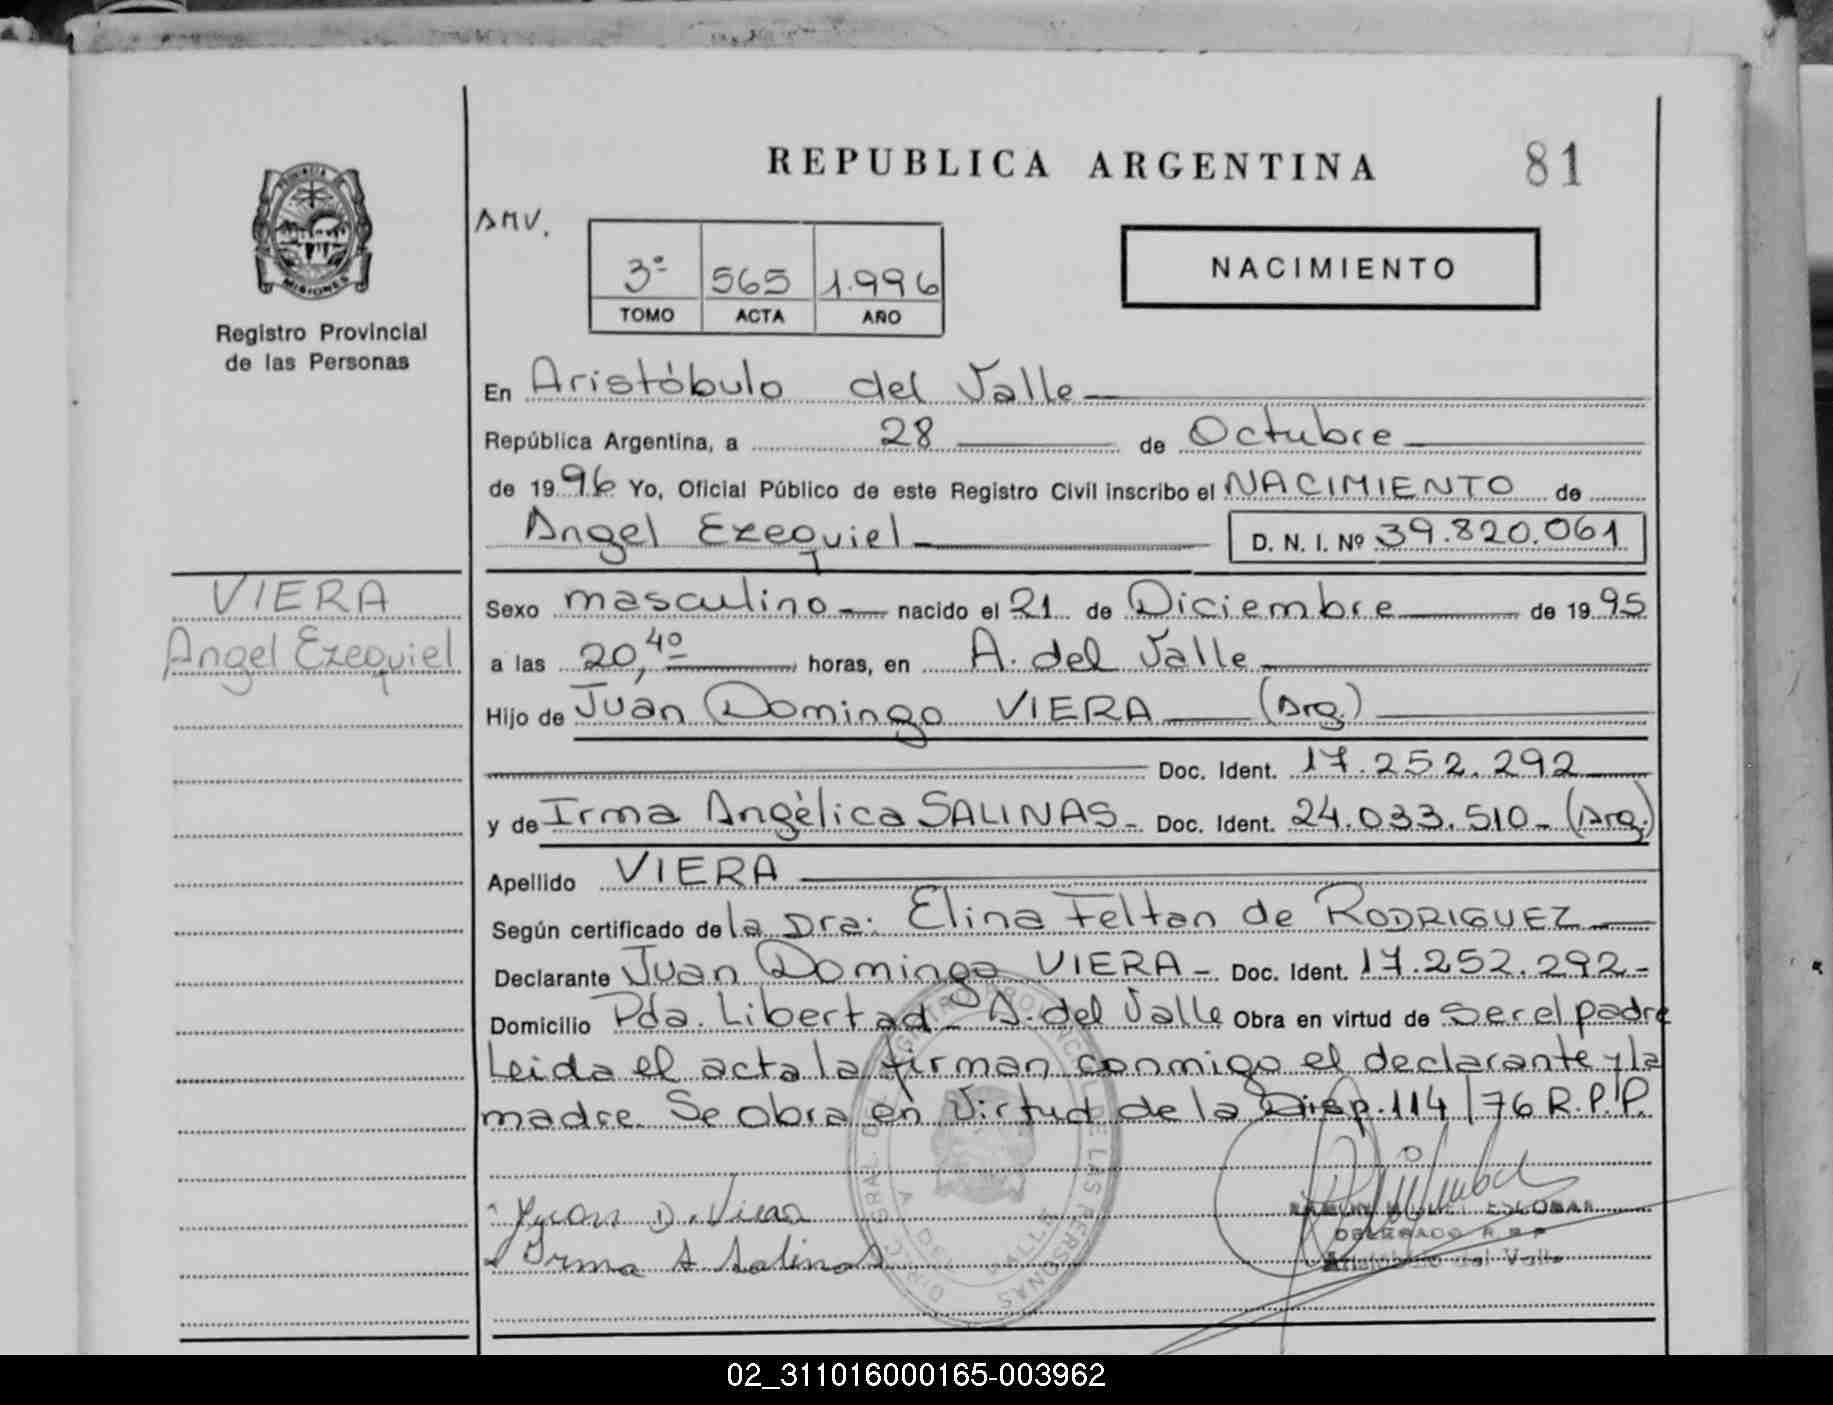 REPUBLICA ARGENTINA
81
PROVINCIA DE
MISIONES
Registro Provincial
de las Personas
AMV.
3º 565 1.996
TOMO ACTA AÑO
NACIMIENTO
En Aristóbulo del Valle
República Argentina, a 28 de Octubre
de 1996 Yo, Oficial Público de este Registro Civil inscribo el NACIMIENTO de
Angel Ezequiel D. N. I. Nº 39.820.061
VIERA
Angel Ezequiel
Sexo masculino nacido el 21 de Diciembre de 1995
a las 20,40 horas, en A. del Valle
Hijo de Juan Domingo VIERA (Arg.)
Doc. Ident. 17.252.292
y de Irma Angélica SALINAS- Doc. Ident. 24.033.510- (Arg.)
Apellido VIERA
Según certificado de la Dra: Elina Feltan de RODRIGUEZ
Declarante Juan Domingo VIERA- Doc. Ident. 17.252.292-
Domicilio Pda. Libertad- A. del Valle Obra en virtud de ser el padre
Leida el acta la firman conmigo el declarante y la
madre. Se obra en Virtud de la Disp. 114/76 R.P.P.
Juan D. Viera
Irma A Salinas
ESCOBAR
DELEGADO R.P.P
Aristóbulo del Valle
DIREC. GRAL DEL REGISTRO PROVINCIAL DE LAS PERSONAS
A. DEL VALLE
02_311016000165-003962